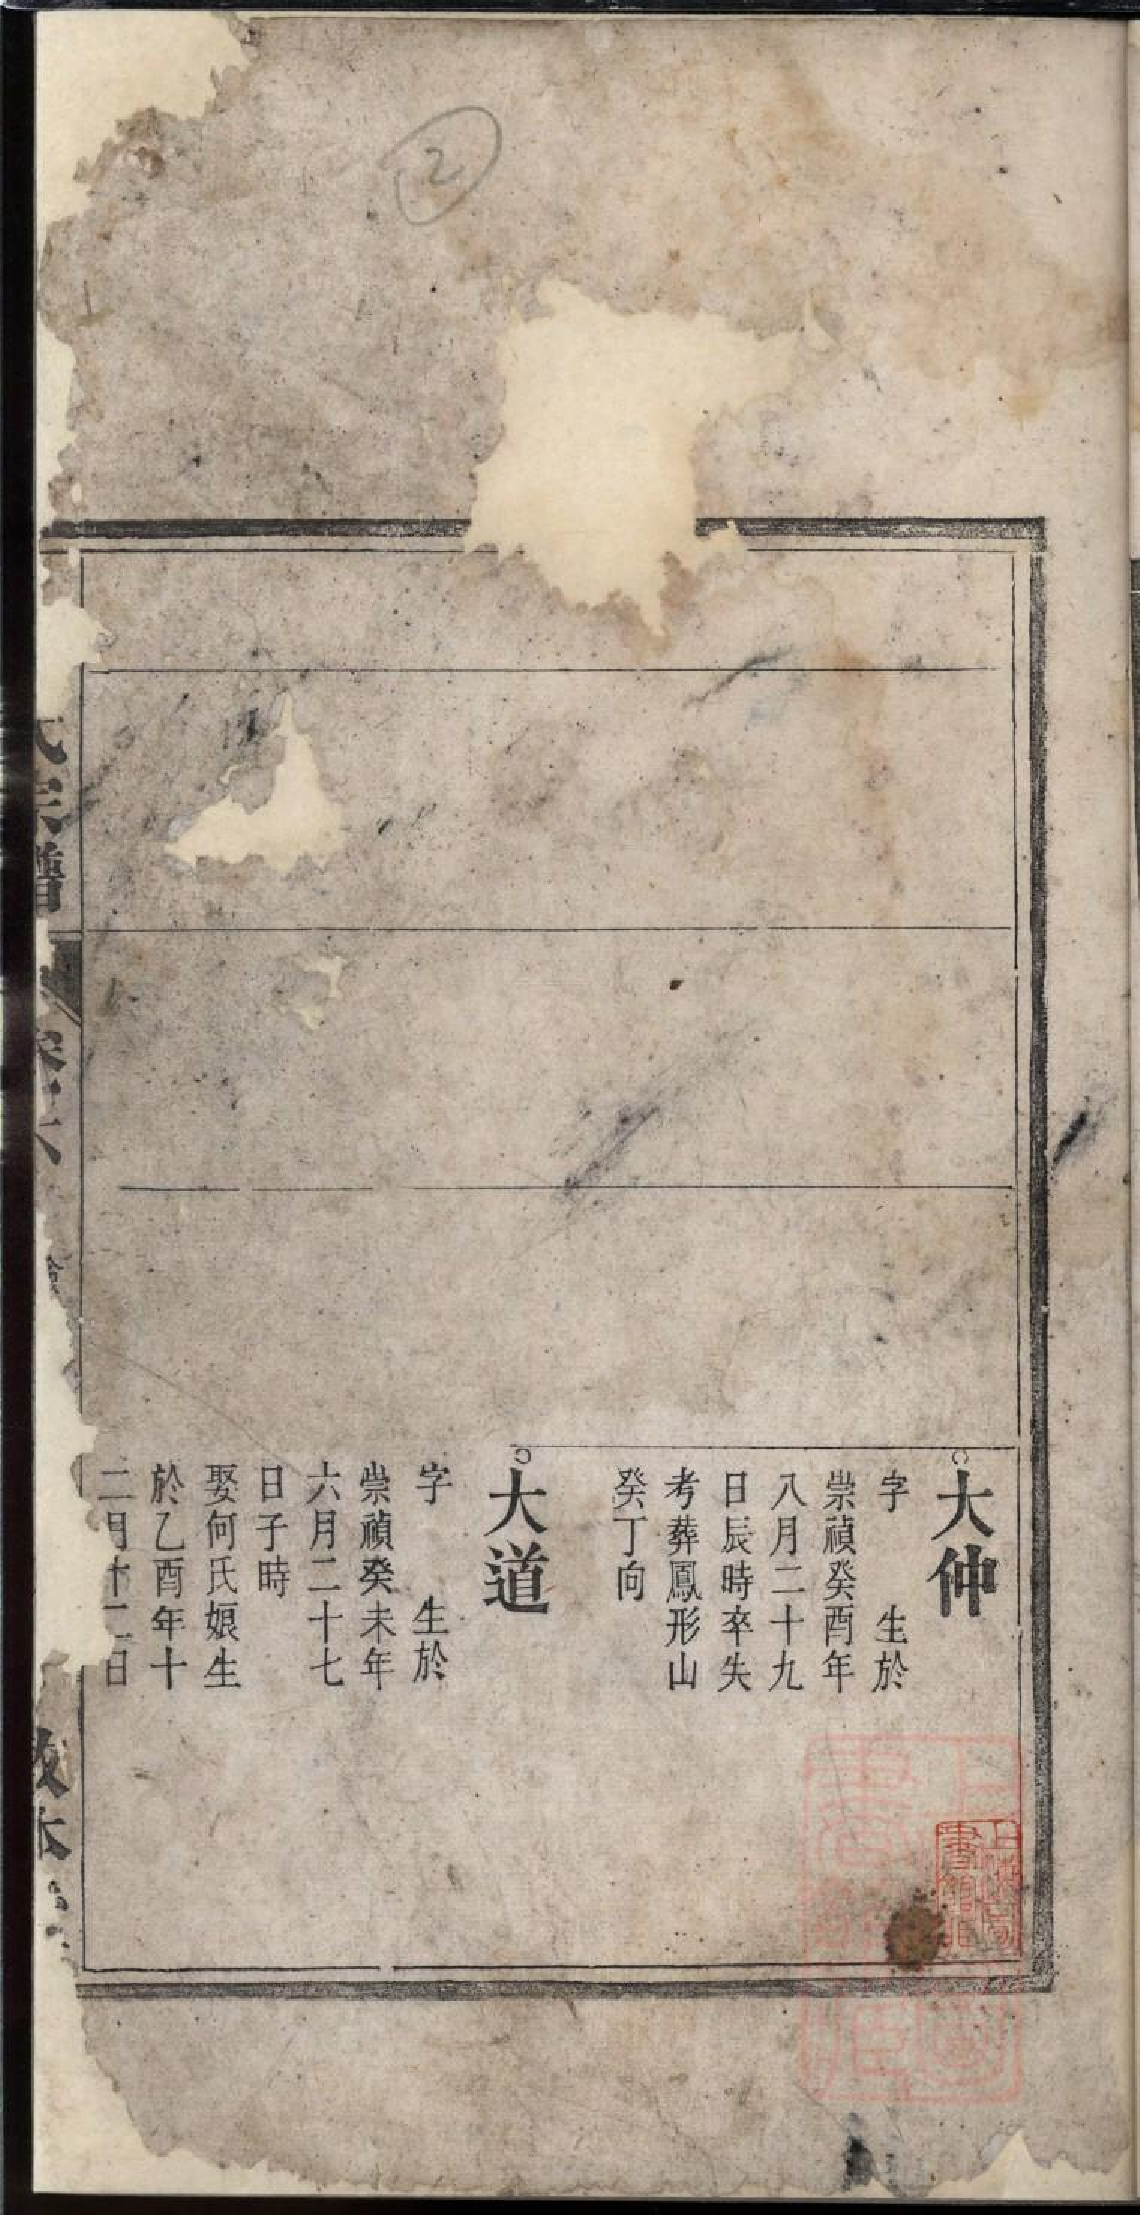 大仲
字　生於
崇禎癸酉年
八月二十九
日辰時卒失
考葬鳳形山
癸丁向
大道
字　生於
崇禎癸未年
六月二十七
日子時
娶何氏娘生
於乙酉年十
二月十二日
氏宗譜
卷六
敦本
2